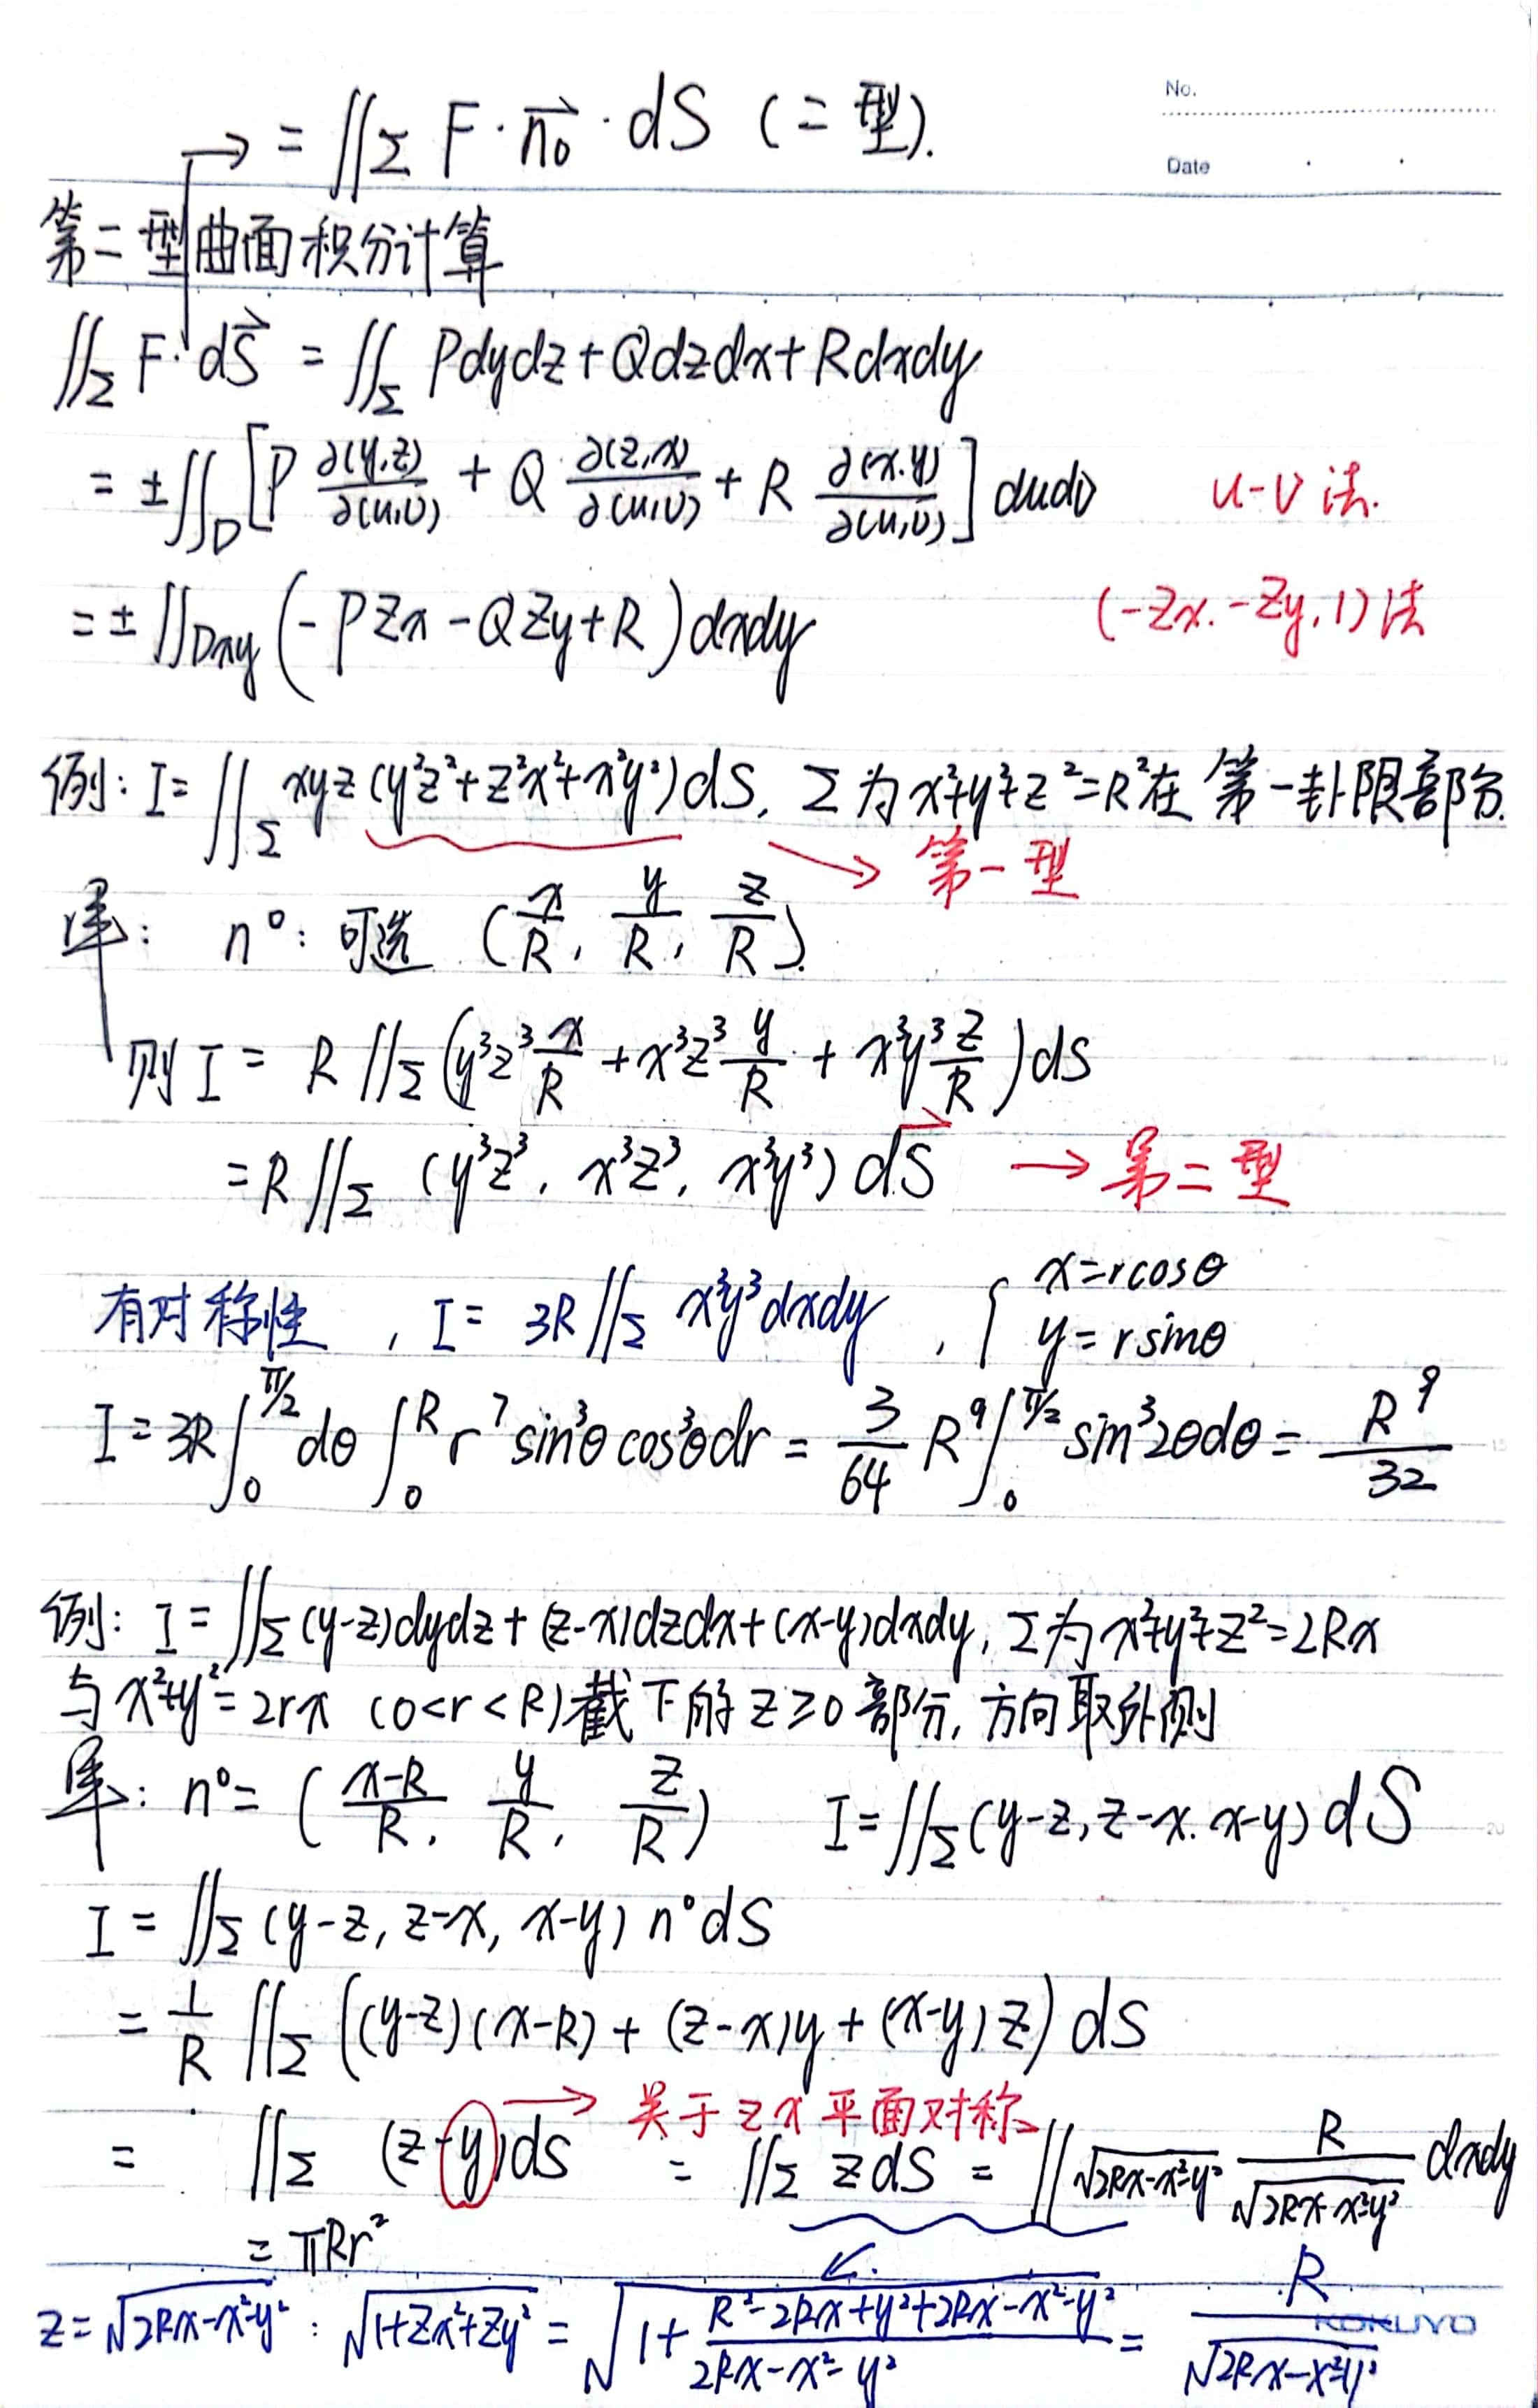 No.
Date
→ = ∬_Σ F·n₀⃗·dS (二型).
第二型曲面积分计算
∬_Σ F·dS⃗ = ∬_Σ Pdydz+Qdzdx+Rdxdy
= ±∬_D [P ∂(y,z)/∂(u,v) + Q ∂(z,x)/∂(u,v) + R ∂(x,y)/∂(u,v)] dudv u-v法.
= ±∬_Dxy (-PZx-QZy+R)dxdy (-Zx,-Zy,1)法
例: I=∬_Σ xyz(y²z²+z²x²+x²y²)dS, Σ为x²+y²+z²=R²在第一卦限部分.
→ 第一型
解: n⁰: 可选 (x/R, y/R, z/R).
则I = R∬_Σ (y³z³ x/R + x³z³ y/R + x³y³ z/R)dS
=R∬_Σ (y³z³, x³z³, x³y³) dS⃗ → 第二型
有对称性, I= 3R∬_Σ x³y³dxdy, { x=rcosθ
y=rsinθ
I=3R∫₀^{π/2} dθ ∫₀^R r⁷ sin³θcos³θdr = 3/64 R⁹∫₀^{π/2} sin³2θdθ = R⁹/32
例: I=∬_Σ(y-z)dydz+(z-x)dzdx+(x-y)dxdy, Σ为x²+y²+z²=2Rx
与x²+y²=2rx (0<r<R)截下的z≥0部分, 方向取外侧
解: n⁰= (x-R/R, y/R, z/R) I=∬_Σ(y-z, z-x, x-y) dS
I = ∬_Σ (y-z, z-x, x-y) n⁰dS
= 1/R ∬_Σ ((y-z)(x-R)+(z-x)y+(x-y)z) dS
→ 关于zx平面对称
= ∬_Σ (z-y)dS = ∬_Σ zdS = ∬ √2Rx-x²-y² R/√2Rx-x²-y² dxdy
= πRr²
z=√2Rx-x²-y² : √1+Zx²+Zy² = √1+ R²-2Rx+y²+2Rx-x²-y²/2Rx-x²-y² = R/√2Rx-x²-y²
KOKUYO